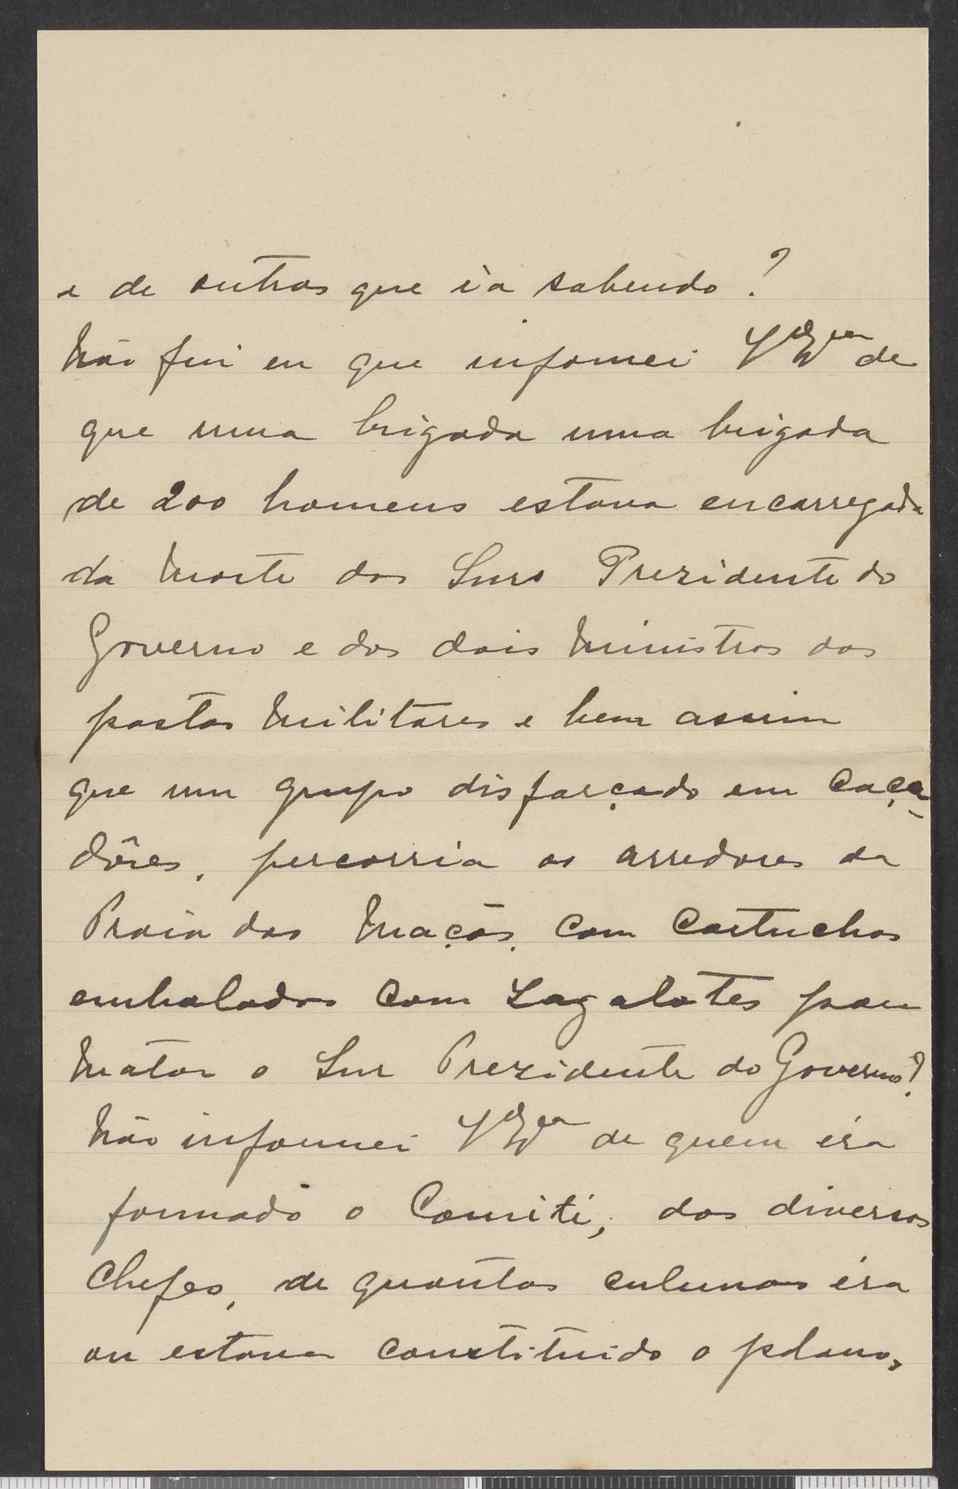 e de outras que ia sabendo?
Não fui eu que infomei V Exª de
que uma brigada uma brigada
de 200 homens estava encarregada
da morte dos Snrs Prezidente do
Governo e dos dois Ministros das
pastas Militares e bem assim
que um grupo disfarçado em caça-
dôres, percorria os arredores da
Praia das Maçãs, com cartuchos
embalados com Zagalotes para
Matar o Snr Prezidente do Governo?
Não informei V Exª de quem éra
formado o Comité, dos diversos
Chefes, de quantas culumas éra
ou estava constituido o plano,